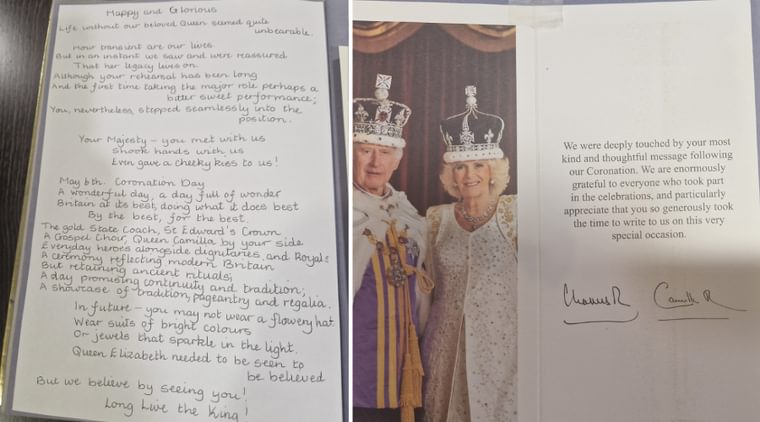 Happy and Glorious
Life without our beloved Queen seemed quite
unbearable.
How transient are our lives
But in an instant we saw and were reassured
That her legacy lives on.
Although your rehearsal has been long
And the first time taking the major role perhaps a
bitter sweet performance;
You, nevertheless, stepped seamlessly into the
position.
Your Majesty – you met with us
Shook hands with us
Even gave a cheeky kiss to us!
May 6th. Coronation Day
A wonderful day, a day full of wonder
Britain at its best, doing what it does best
By the best, for the best.
The gold State Coach, St Edward's Crown
A Gospel Choir, Queen Camilla by your side
Everyday heroes alongside dignitaries and Royals
A ceremony reflecting modern Britain
But retaining ancient rituals;
A day promising continuity and tradition;
A showcase of tradition, pageantry and regalia.
In future – you may not wear a flowery hat
Wear suits of bright colours
Or jewels that sparkle in the light.
Queen Elizabeth needed to be seen to
be believed
But we believe by seeing you!
Long Live the King!
We were deeply touched by your most
kind and thoughtful message following
our Coronation. We are enormously
grateful to everyone who took part
in the celebrations, and particularly
appreciate that you so generously took
the time to write to us on this very
special occasion.
Charles R Camilla R